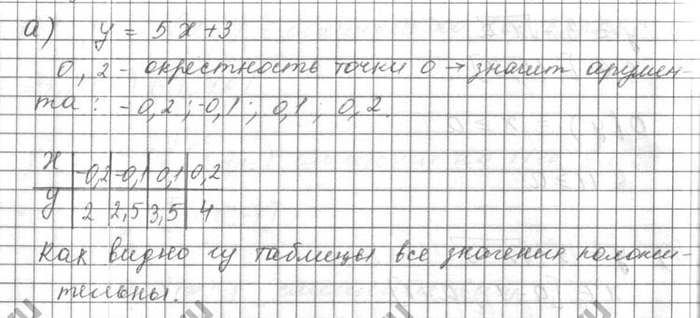 а) y = 5x+3
0,2 - окрестность точки 0 → значит аргумен-
та: -0,2; -0,1; 0,1; 0,2.
x | -0,2 | -0,1 | 0,1 | 0,2
y | 2 | 2,5 | 3,5 | 4
Как видно из таблицы все значения положи-
тельны.